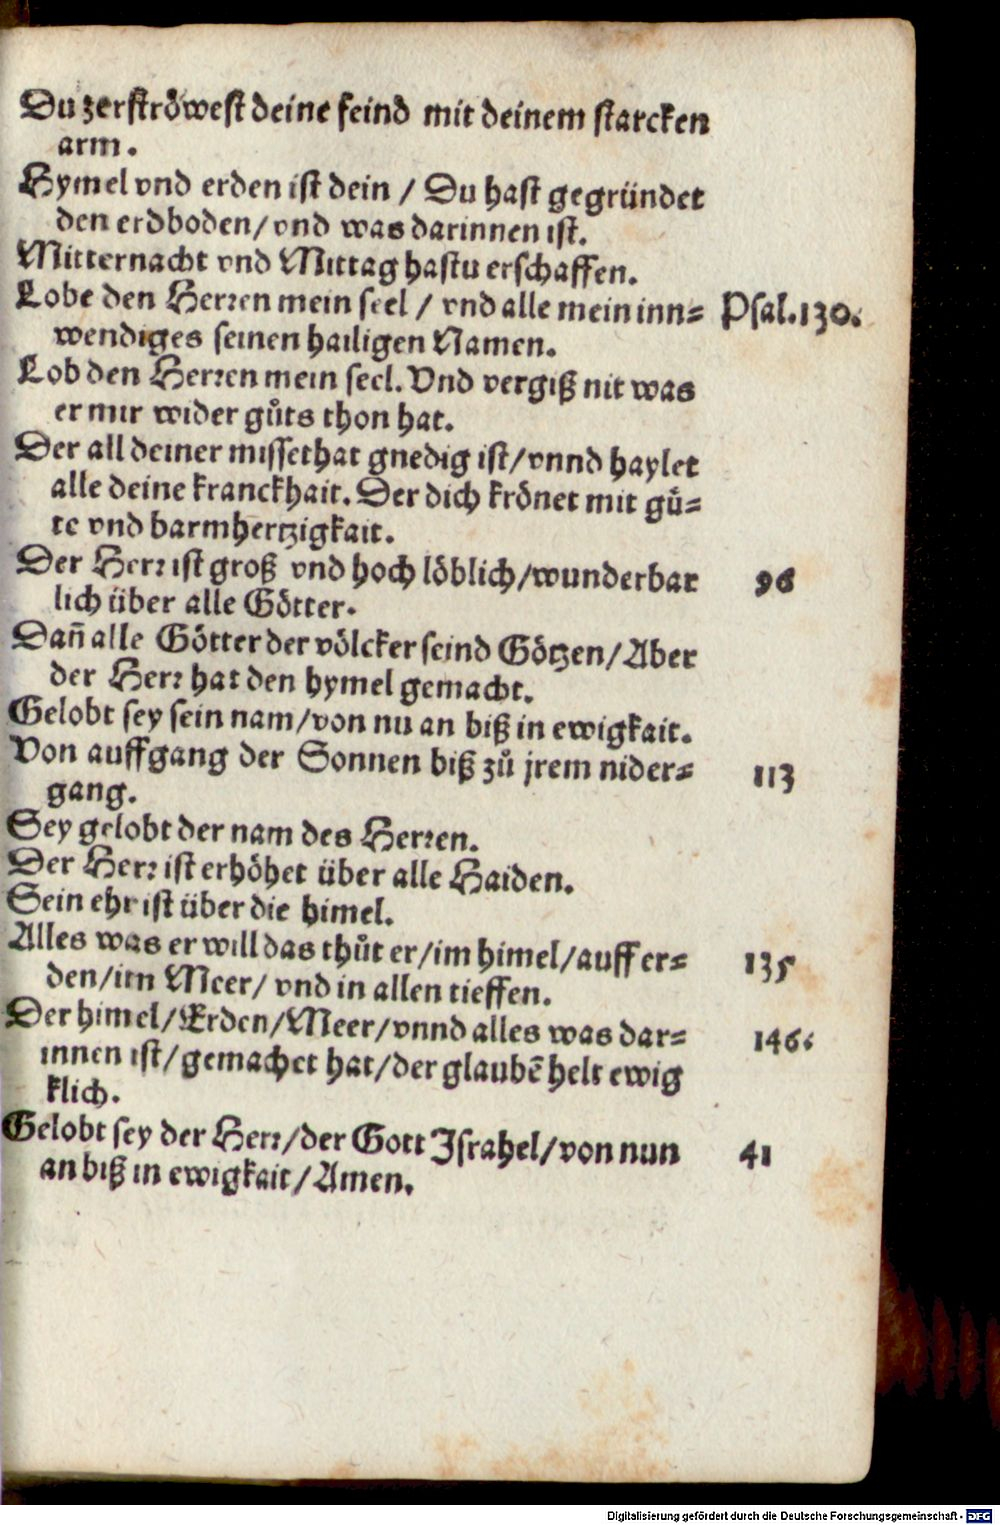 Du zerströwest deine feind mit deinem starcken
arm.
Hymel vnd erden ist dein / Du hast gegründet
den erdboden/vnd was darinnen ist.
Mitternacht vnd Mittag hastu erschaffen.
Lobe den Herren mein seel / vnd alle mein inn= Psal.130.
wendiges seinen hailigen Namen.
Lob den Herren mein seel. Vnd vergiß nit was
er mir wider gůts thon hat.
Der all deiner missethat gnedig ist/vnnd haylet
alle deine kranckhait. Der dich krönet mit gů=
te vnd barmhertzigkait.
Der Herr ist groß vnd hoch löblich/wunderbar 96
lich über alle Götter.
Dañ alle Götter der völcker seind Götzen/Aber
der Herr hat den hymel gemacht.
Gelobt sey sein nam/von nu an biß in ewigkait.
Von auffgang der Sonnen biß zů jrem nider= 113
gang.
Sey gelobt der nam des Herren.
Der Herr ist erhöhet über alle Haiden.
Sein ehr ist über die himel.
Alles was er will das thůt er/im himel/auff er= 135
den/im Meer/ vnd in allen tieffen.
Der himel/Erden/Meer/vnnd alles was dar= 146.
innen ist/gemachet hat/der glaubē helt ewig
klich.
Gelobt sey der Herr/der Gott Israhel/von nun 41
an biß in ewigkait/Amen.
Digitalisierung gefördert durch die Deutsche Forschungsgemeinschaft - DFG